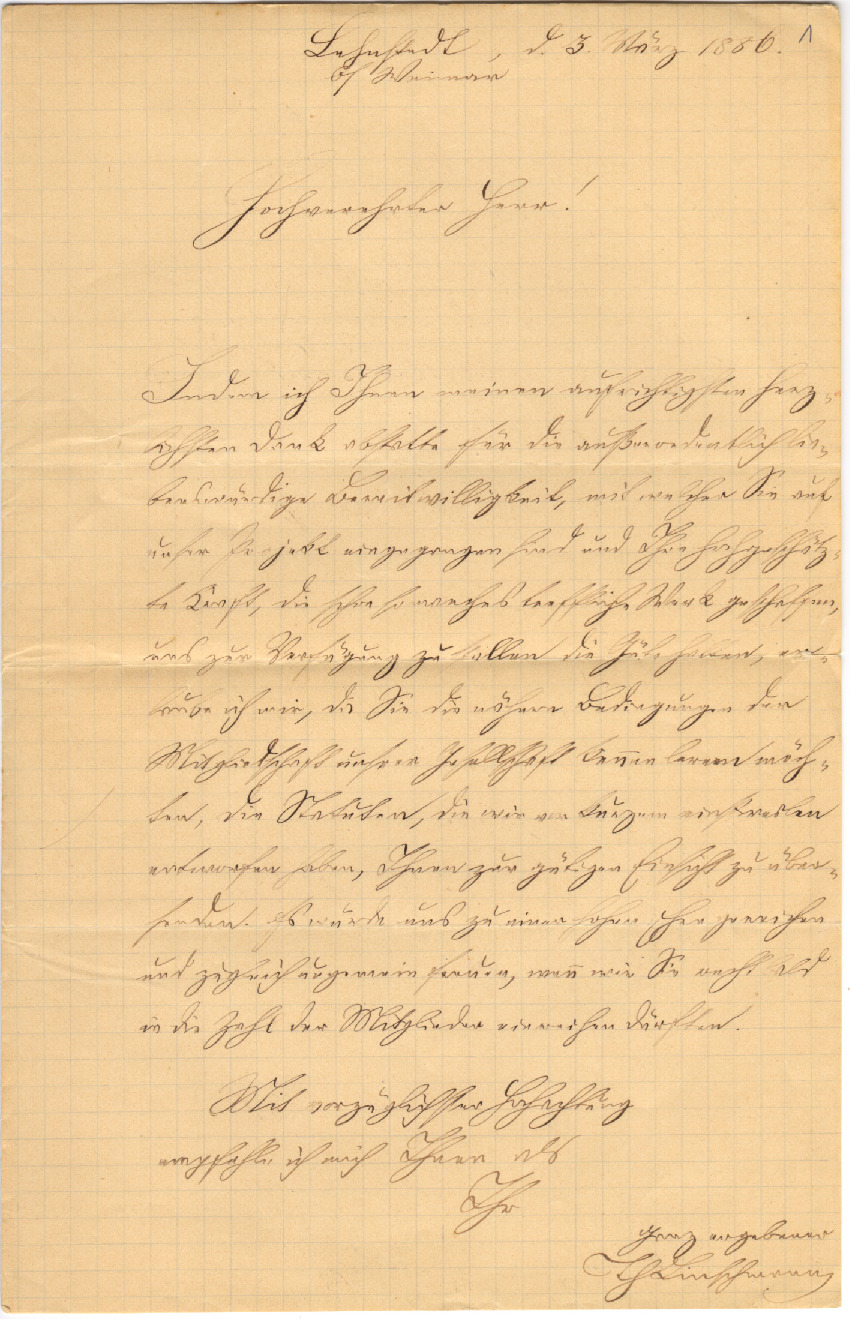 Lehnstedt, d. 3. März 1886. 1
b/ Weimar
Hochverehrter Herr!
Indem ich Ihnen meinen aufrichtigsten herz-
lichsten Dank abstatte für die außerordentlich lie-
benswürdige Bereitwilligkeit, mit welcher Sie auf
unser Projekt eingegangen sind und Ihre hochgeschätz-
te Kraft, die schon so manches treffliche Werk geschaffen,
uns zur Verfügung zu stellen die Güte hatten, er-
laube ich mir, da Sie die nähern Bedingungen der
Mitgliedschaft unsrer Gesellschaft kennen lernen möch-
ten, die Statuten, die wir vor kurzem einstweilen
entworfen haben, Ihnen zur gütigen Einsicht zu über-
senden. Es würde uns zu einer hohen Ehre gereichen
und zugleich ungemein freuen, wenn wir Sie recht bald
in die Zahl der Mitglieder einreihen dürften.
Mit vorzüglichster Hochachtung
empfehle ich mich Ihnen als
Ihr
ganz ergebener
Th Linschmann